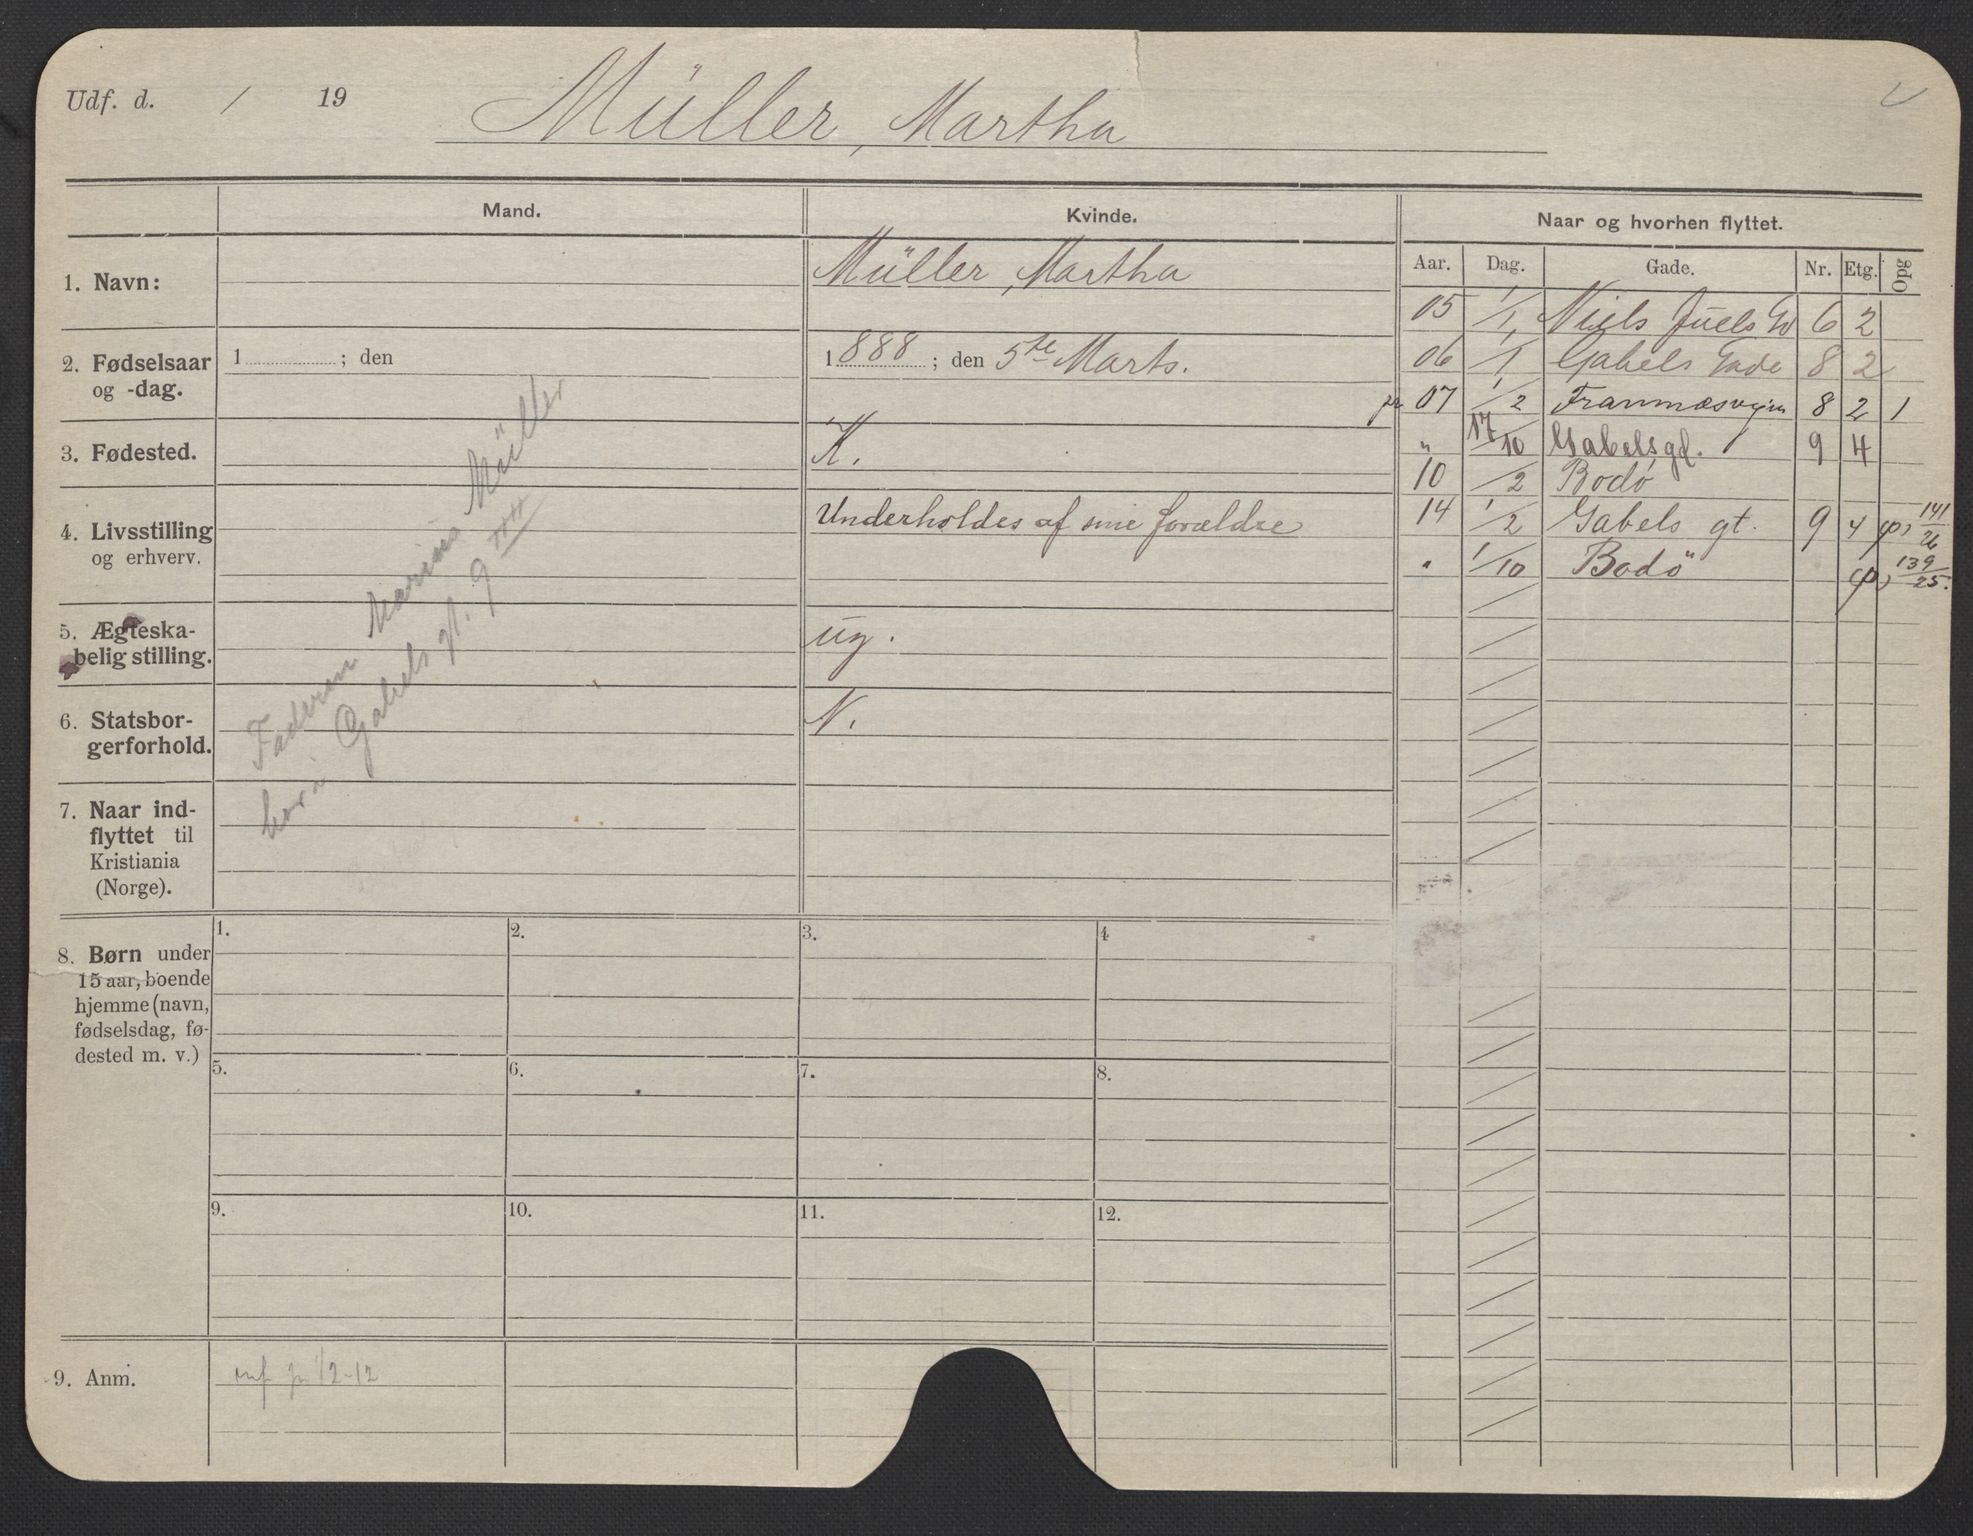 Udf. d. / 19
Müller, Martha
Mand.
Kvinde.
Naar og hvorhen flyttet.
Aar. Dag. Gade. Nr. Etg. Opg
1. Navn:
Müller, Martha
2. Fødselsaar
og -dag.
1 ; den
1888 ; den 5te Marts.
3. Fødested.
K.
4. Livsstilling
og erhverv.
Underholdes af sine forældre
5. Ægteska-
belig stilling.
ug.
6. Statsbor-
gerforhold.
N.
7. Naar ind-
flyttet til
Kristiania
(Norge).
Faderen Marius Müller
bor i Gabels gt. 9
05 1/1 Niels Juels Gd 6 2
06 /1 Gabels Gade 8 2
07 1/2 Framnæsveien 8 2 1
" 17/10 Gabelsgd. 9 4
10 /2 Bodø
14 1/2 Gabels gt. 9 4 141/26
" 1/10 Bodö 139/25.
8. Børn under
15 aar, boende
hjemme (navn,
fødselsdag, fø-
dested m. v.)
1. 2. 3. 4
5. 6. 7. 8.
9. 10. 11. 12.
9. Anm.
1/2-12